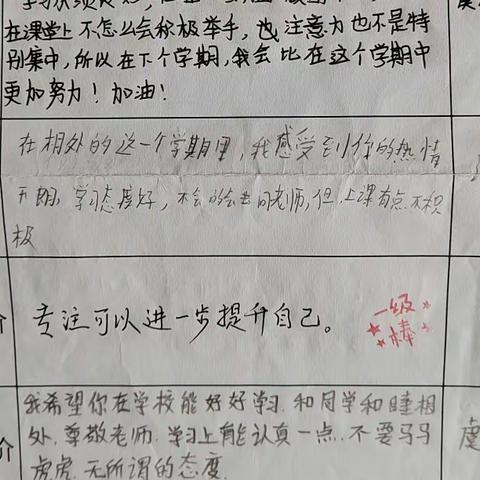 在课堂上不怎么会积极举手,也注意力也不是特
别集中,所以在下个学期,我会比在这个学期中
更加努力!加油!
在相处的这一个学期里,我感受到你的热情
开朗,学习态度好,不会的会去问老师,但上课有点不积
极
专注可以进一步提升自己。
一级
棒
介
我希望你在学校能好好学习.和同学和睦相
处.尊敬老师.学习上能认真一点.不要马马
虎虎.无所谓的态度.
介
虞